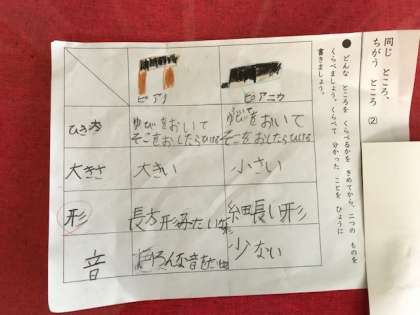 同じ ところ、
ちがう ところ (2)
● どんな ところを くらべるかを きめてから、二つの ものを
くらべましょう。くらべて 分かった ことを ひょうに
書きましょう。
ピアノ
ピアニカ
ひき方
ゆびをおいて
そこをおしたらひける
ゆびをおいて
そこをおしたらひける
大きさ
大きい
小さい
形
長方形みたいな形
細長い形
音
少ない